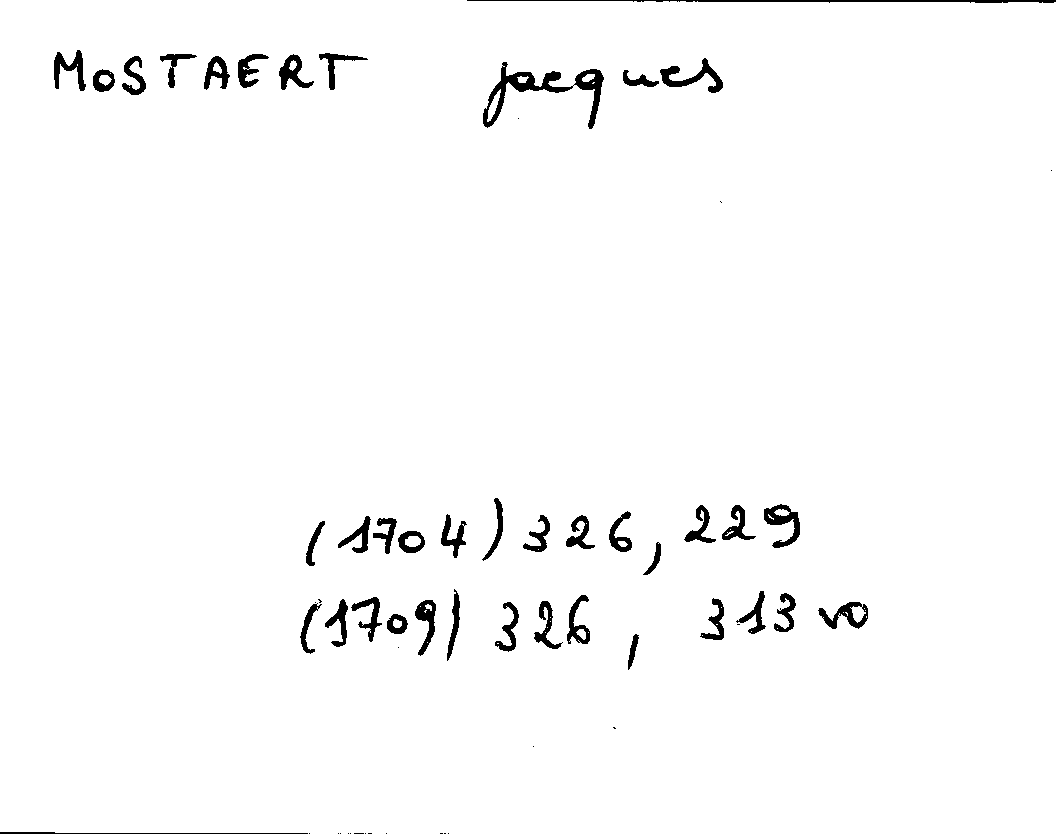 MOSTAERT jacques
(1704) 326, 229
(1709) 326, 313 vo